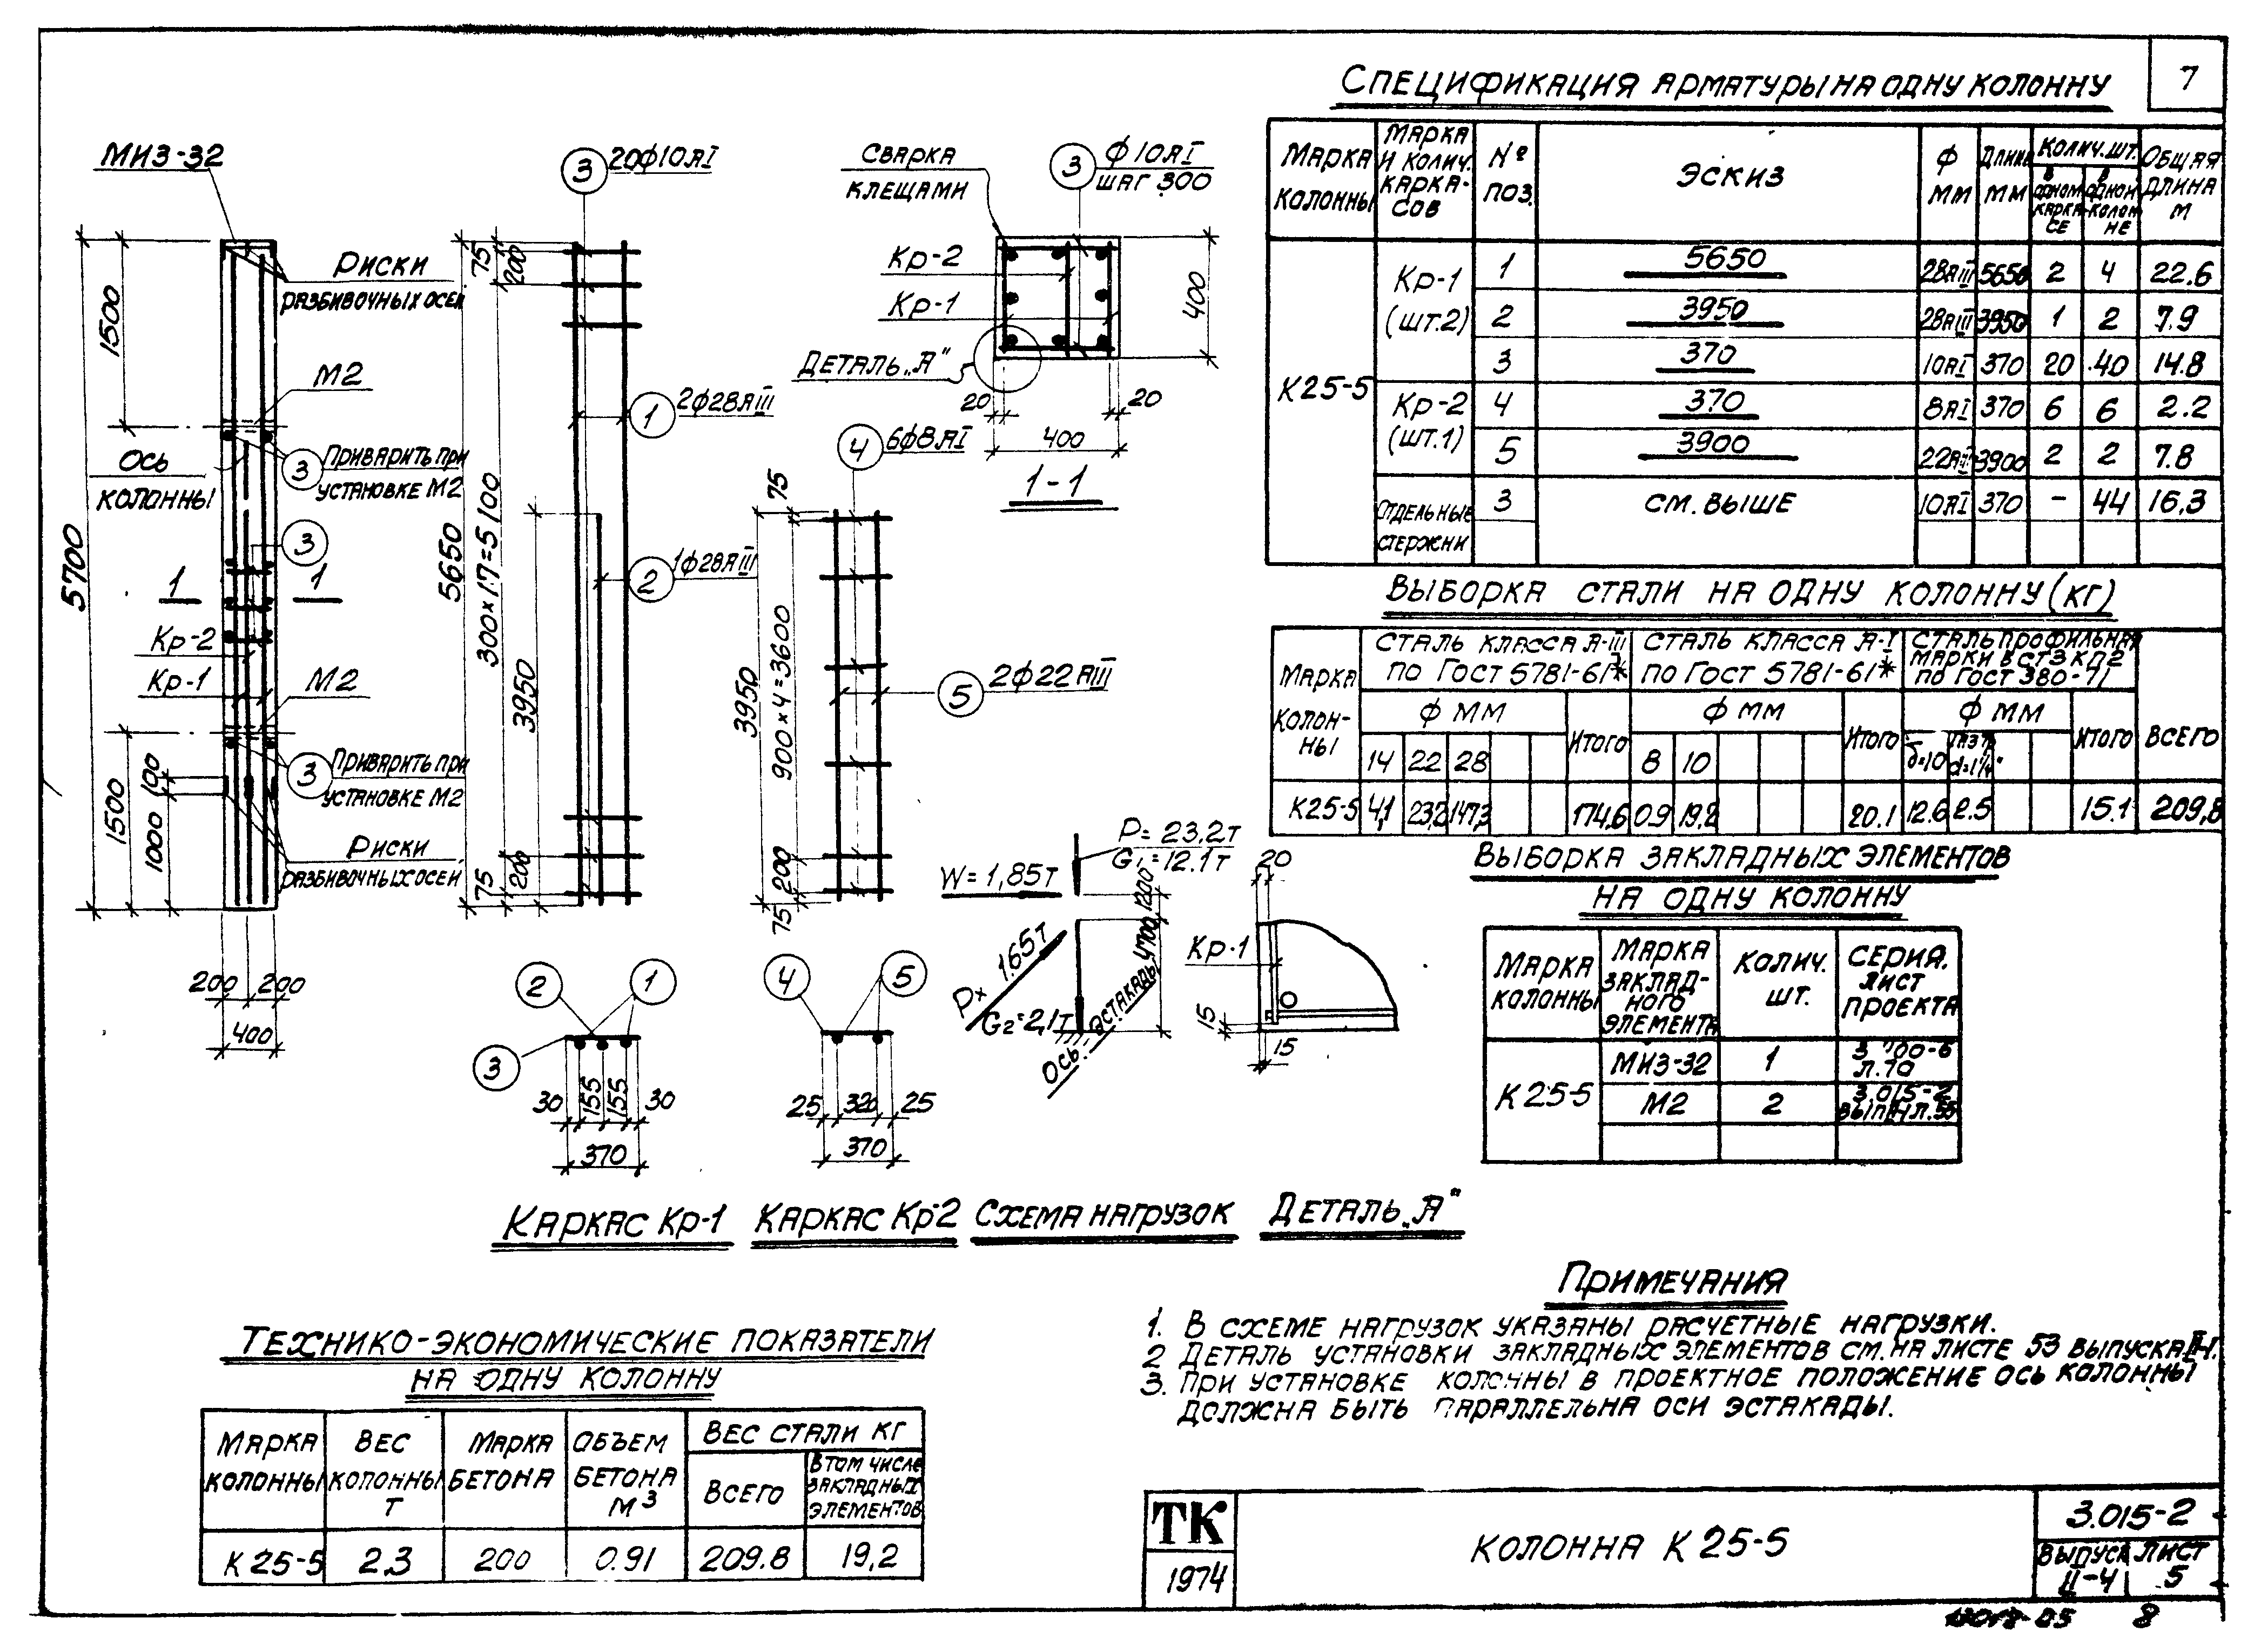 7
МИЗ-32
Риски
разбивочных осей
1500
М2
Ось
колонны
3
Приварить при
установке М2
5700
3
1 1
Кр-2
Кр-1
М2
3
Приварить при
установке М2
1500
100
1000
Риски
разбивочных осей
200 200
400
3 20ф10АI
75
200
1 2ф28АIII
5650
300×17=5100
3950
2 1ф28АIII
200
75
2 1
3
30 155 155 30
370
Каркас Кр-1
4 6ф8АI
75
3950
900×4=3600
5 2ф22АIII
200
75
4 5
25 320 25
370
Каркас Кр-2
Сварка
клещами
3 ф10АI
шаг 300
Кр-2
Кр-1
Деталь „А"
400
20 20
400
1-1
P=23,2т
G1=12.1т
W=1,85т
1200
4700
Px 1.65т
G2=2,1т
Ось эстакады
Схема нагрузок
20
Кр-1
15
15
Деталь „А"
Спецификация арматуры на одну колонну
Марка колонны
Марка и колич. каркасов
№ поз.
Эскиз
Ф мм
Длина мм
Колич. шт.
в одном каркасе
в одной колонне
Общая длина м
К25-5
Кр-1 (шт.2)
1 5650 28АIII 5650 2 4 22.6
2 3950 28АIII 3950 1 2 7.9
3 370 10АI 370 20 40 14.8
Кр-2 (шт.1)
4 370 8АI 370 6 6 2.2
5 3900 22АIII 3900 2 2 7.8
Отдельные стержни
3 см. выше 10АI 370 - 44 16,3
Выборка стали на одну колонну (кг)
Марка колонны
Сталь класса А-III по Гост 5781-61*
Сталь класса А-I по Гост 5781-61*
Сталь профильная марки ВСт3кп2 по Гост 380-71
Всего
ф мм Итого ф мм Итого ф мм Итого
14 22 28 8 10 δ=10 d=1¼"
К25-5 4,1 23,2 147,3 174,6 0.9 19,2 20.1 12.6 2.5 15.1 209,8
Выборка закладных элементов
на одну колонну
Марка колонны
Марка закладного элемента
Колич. шт.
Серия. лист проекта
К25-5
МИЗ-32 1 л.70
М2 2 3.015-2
Примечания
1. В схеме нагрузок указаны расчетные нагрузки.
2 Деталь установки закладных элементов см. на листе 53 выпуска
3. При установке колонны в проектное положение ось колонны
должна быть параллельна оси эстакады.
Технико-экономические показатели
на одну колонну
Марка колонны
Вес колонны т
Марка бетона
Объем бетона м³
Вес стали кг
Всего
В том числе закладных элементов
К25-5 2,3 200 0.91 209.8 19,2
ТК
1974
Колонна К25-5
3.015-2
Выпуск II-4
Лист 5
8